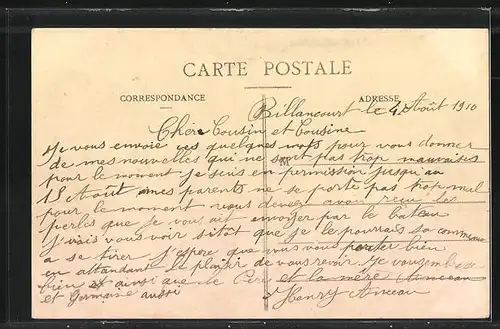 CARTE POSTALE
CORRESPONDANCE
ADRESSE
Billancourt le 4 Août 1910
Chère Cousin et Cousine
Je vous envoie ces quelques mots pour vous donner
de mes nouvelles qui ne sont pas trop mauvaises
pour le moment je suis en permission jusqu'au
15 Août mes parents ne se porte pas trop mal
pour le moment vous devez avoir reçu les
perles que je vous ait envoyer par le bateau
J'vais vous voir sitôt que je le pourrais sa commence
a se tirer J'espère que vous vous porter bien
en attandant le plaisir de vous revoir Je vous
bien et ainsi que le Père et la mère
et Germaine aussi
Henry